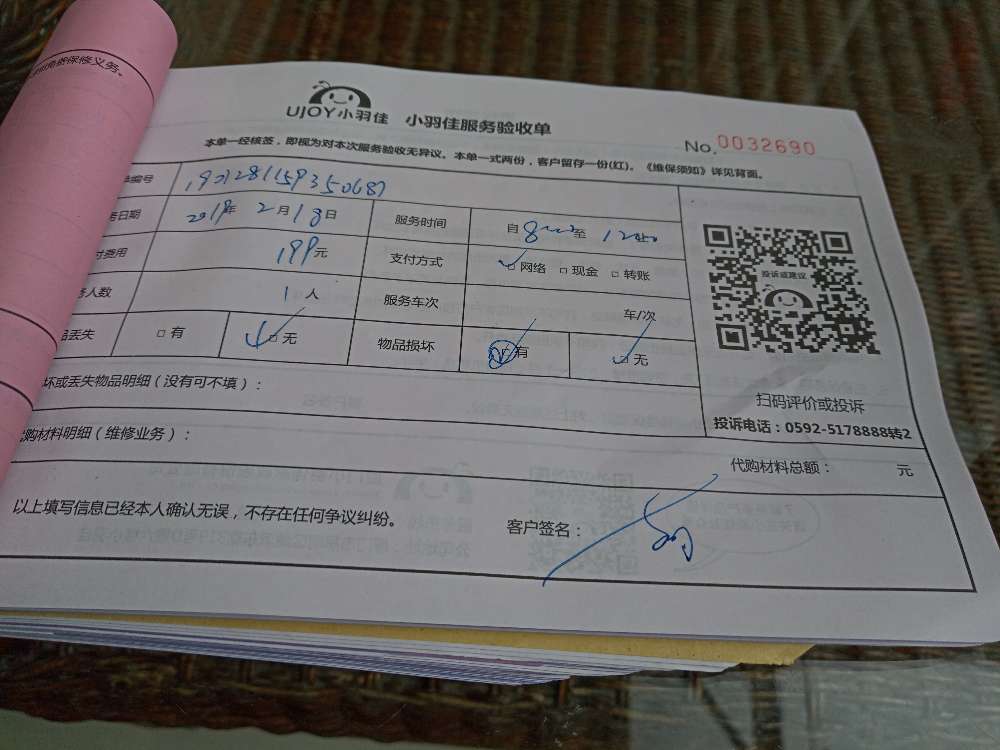 保修义务。
UJOY小羽佳 小羽佳服务验收单
No. 0032690
本单一经核签，即视为对本次服务验收无异议。本单一式两份，客户留存一份(红)。《维保须知》详见背面。
单编号
务日期 2019年 2月18日 服务时间 自8:00至12:00
付费用 199元 支付方式 ✓□网络 □现金 □转账
务人数 1人 服务车次 车/次
品丢失 □有 ✓□无 物品损坏 □有 ✓□无
投诉或建议
扫码评价或投诉
投诉电话：0592-5178888转2
坏或丢失物品明细（没有可不填）：
购材料明细（维修业务）：
代购材料总额： 元
以上填写信息已经本人确认无误，不存在任何争议纠纷。
客户签名：